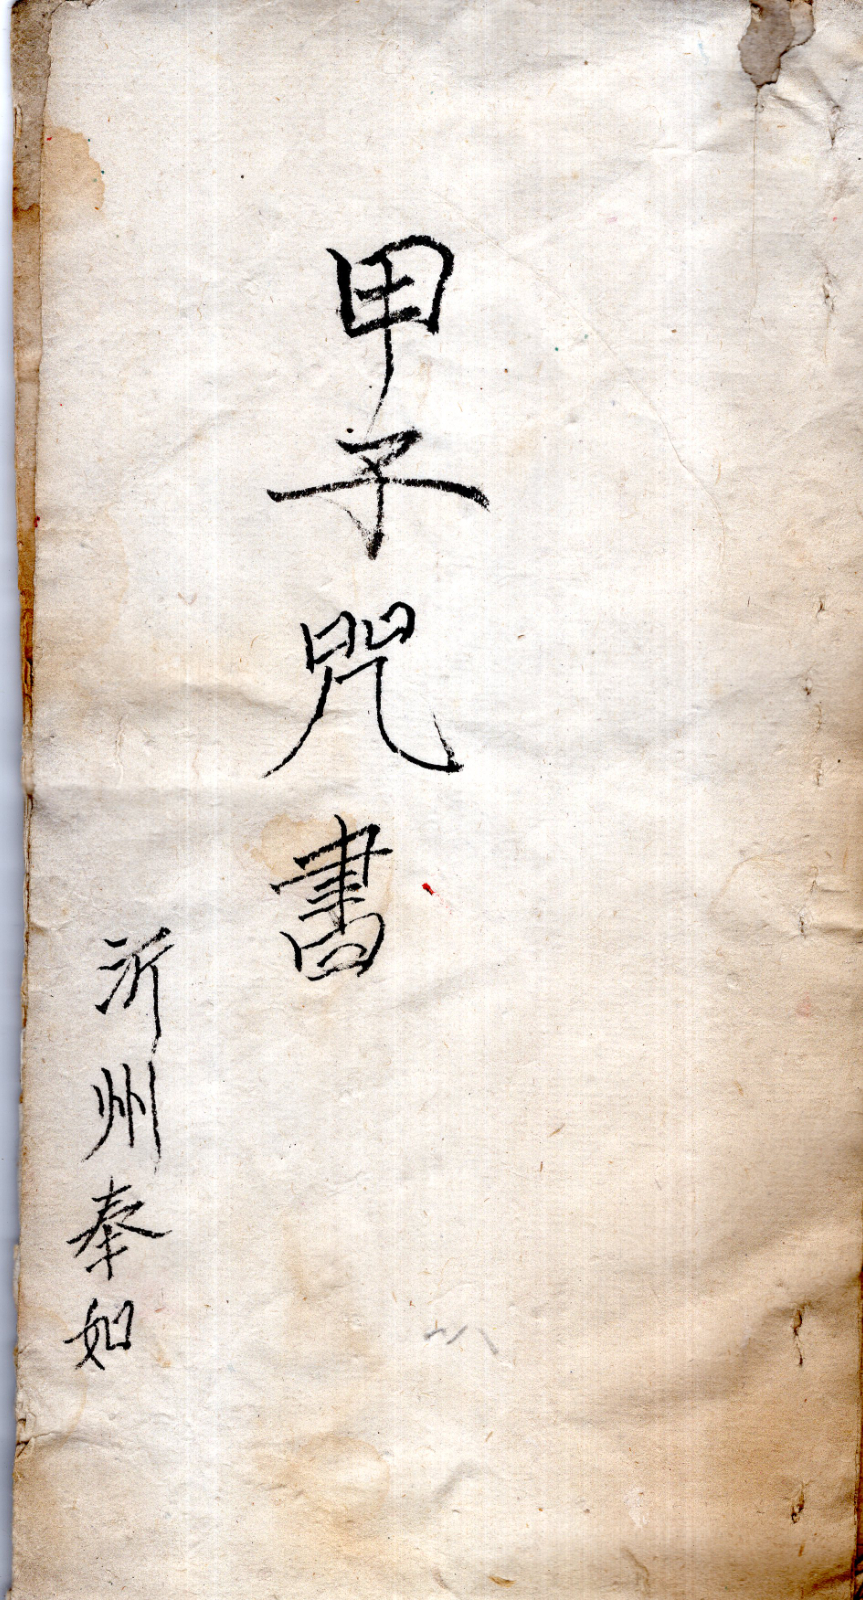 甲子咒書
沂州奉如